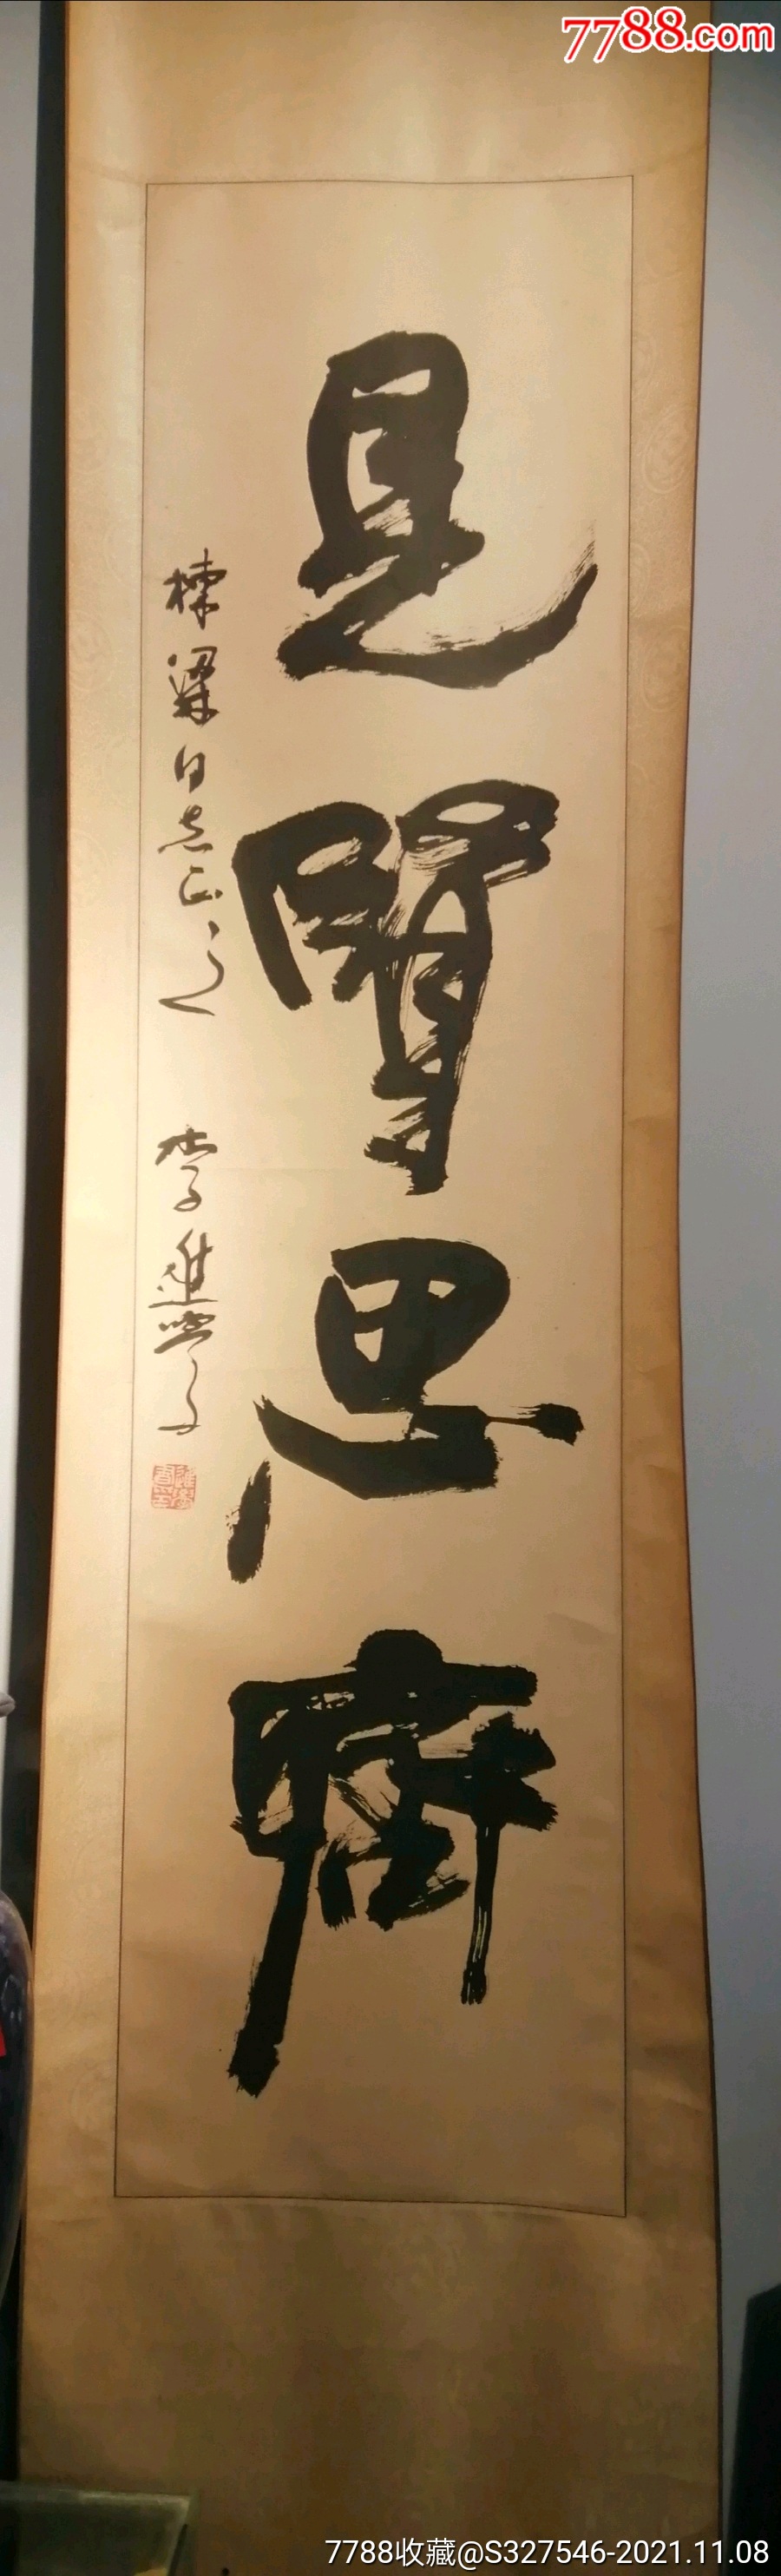 7788.com
見賢思齊
棟梁同志正之
李進學
7788收藏@S327546-2021.11.08